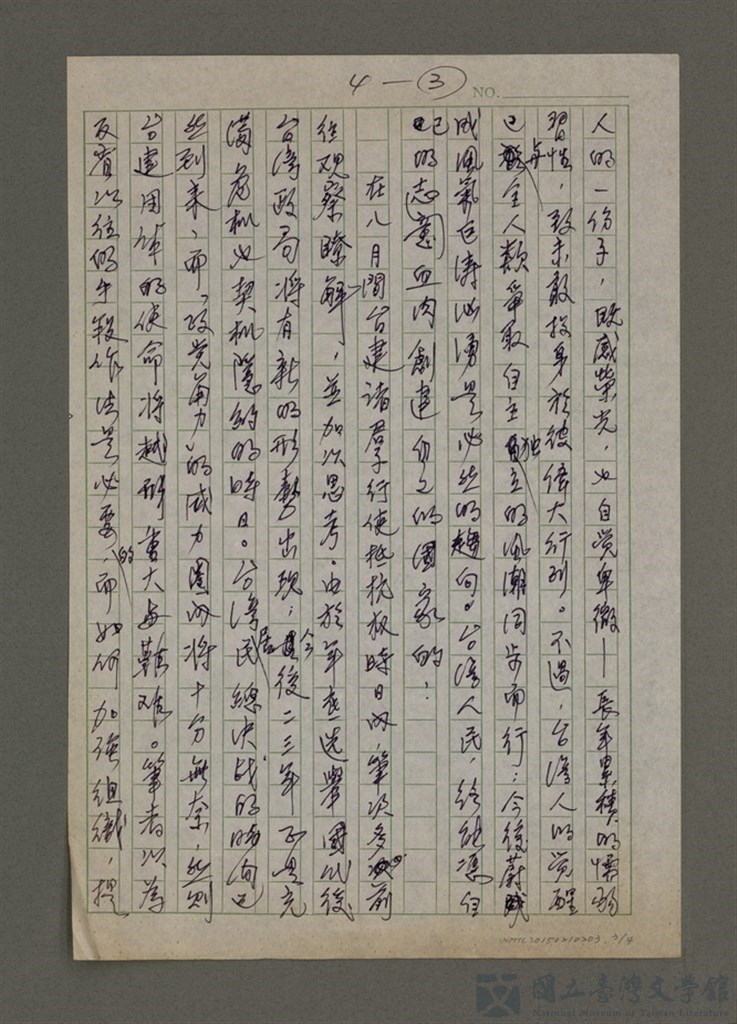 4—③
NO.
人的一份子，既感榮光，也自覺卑微—長年累積的懦弱
習性，致未敢投身於彼偉大行列。不過，台灣人的覺醒
已與全人類爭取自主独立的風潮同步而行；今後蔚成
風氣巨濤洶湧是必然的趨向。台灣人民，終能憑自
己的志意血肉創建自己的國家的！
在八月間台建諸君子行使抵抗权時日內，筆次多次前
往观察瞭解，並加以思考。由於年底選舉國代後
台灣政局将有新的形勢出現；今後二三年正是充
滿危机也契机隱約的時日。台湾居民總决战的時间已
然到來，而「政党角力」的威力圈內将十分無奈，然則
台建团体的使命将越形重大与艱难。筆者以為
反省以往的生殺作法是必要的，而如何加強組織，提
NMTL20150210203. 3/4
國立臺灣文學館
National Museum of Taiwan Literature